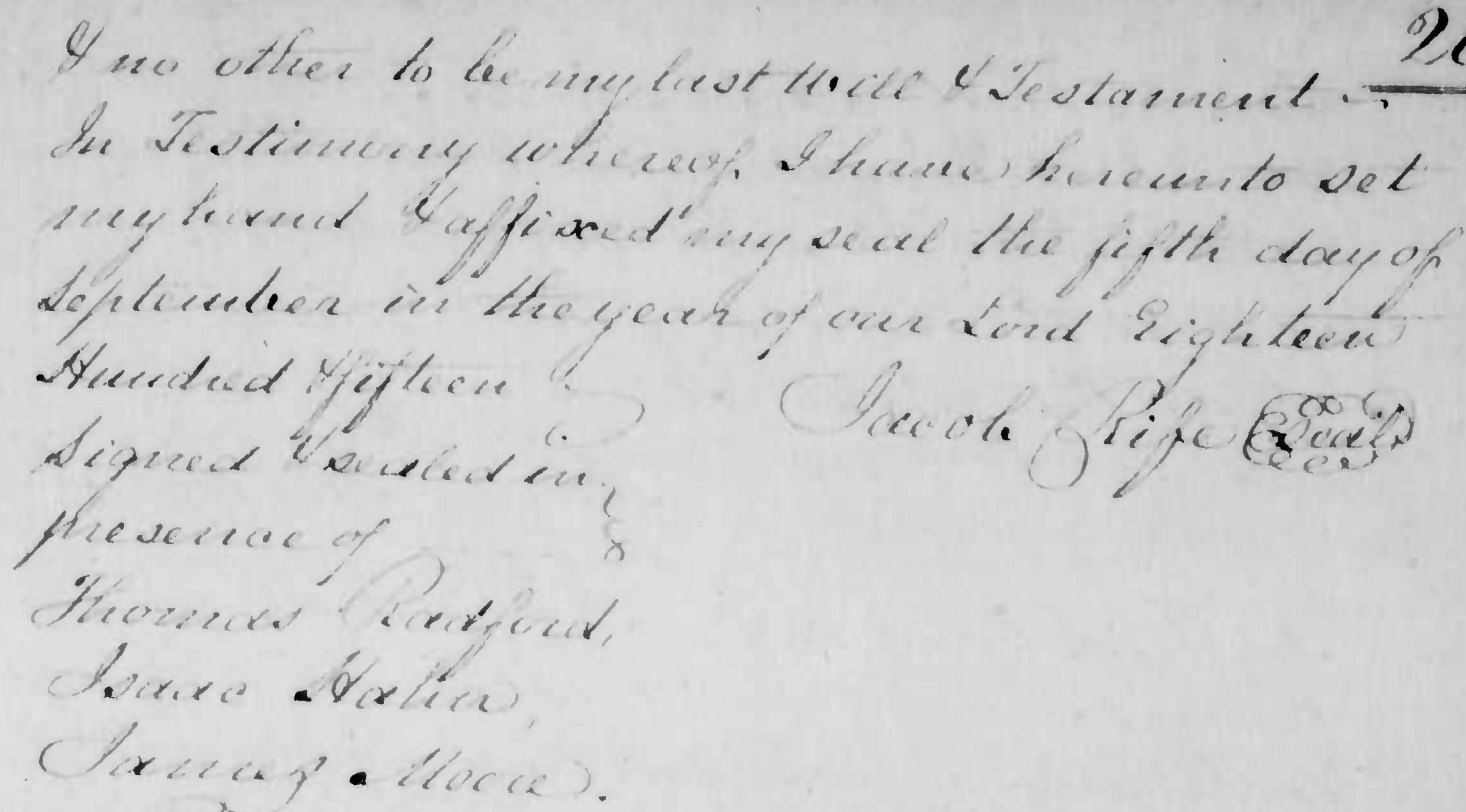 & no other to be my last Will & Testament
In Testimony whereof I have hereunto set
my hand & affixed my seal the fifth day of
September in the year of our Lord Eighteen
Hundred & fifteen
Jacob Rife Seal
Signed & sealed in
presence of
Thomas Radford,
Isaac Hahn,
James Moore.